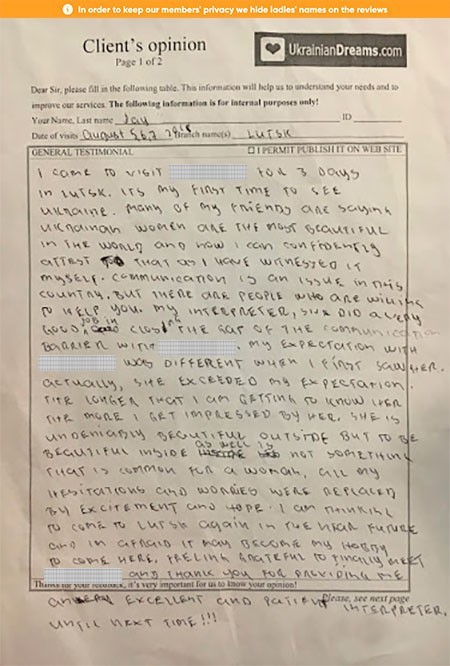 In order to keep our members' privacy we hide ladies' names on the reviews
Client's opinion
Page 1 of 2
UkrainianDreams.com
Dear Sir, please fill in the following table. This information will help us to understand your needs and to
improve our services. The following information is for internal purposes only!
Your Name, Last name Jay ID
Date of visits August 5,6,7 2018 Branch name(s) LUTSK
GENERAL TESTIMONIAL I PERMIT PUBLISH IT ON WEB SITE
I CAME TO VISIT FOR 3 DAYS
IN LUTSK. ITS MY FIRST TIME TO SEE
UKRAINE. MANY OF MY FRIENDS ARE SAYING
UKRAINAN WOMEN ARE THE MOST BEAUTIFUL
IN THE WORLD AND NOW I CAN CONFIDENTLY
ATTEST THAT AS I HAVE WITNESSED IT
MYSELF. COMMUNICATION IS AN ISSUE IN THIS
COUNTRY, BUT THERE ARE PEOPLE WHO ARE WILLING
TO HELP YOU. MY INTERPRETER, DID A VERY
GOOD JOB IN THE GAP OF THE COMMUNICATION
BARRIER WITH . MY EXPECTATION WITH
WAS DIFFERENT WHEN I FIRST SAW HER.
ACTUALLY, SHE EXCEEDED MY EXPECTATION.
THE LONGER THAT I AM GETTING TO KNOW HER
THE MORE I GET IMPRESSED BY HER. SHE IS
UNDENIABLY BEAUTIFUL OUTSIDE BUT TO BE
BEAUTIFUL INSIDE AS WELL IS NOT SOMETHING
THAT IS COMMON FOR A WOMAN, ALL MY
HESITATIONS AND WORRIES WERE REPLACED
BY EXCITEMENT AND HOPE. I AM THINKING
TO COME TO LUTSK AGAIN IN THE NEAR FUTURE
AND IM AFRAID IT MAY BECOME MY HOBBY
TO COME HERE, FEELING GRATEFUL TO FINALLY MEET
AND THANK YOU FOR PROVIDING ME
Thanks for your feedback, it's very important for us to know your opinion!
Please, see next page
AN EXCELLENT AND PATIENT INTERPRETER.
UNTIL NEXT TIME!!!